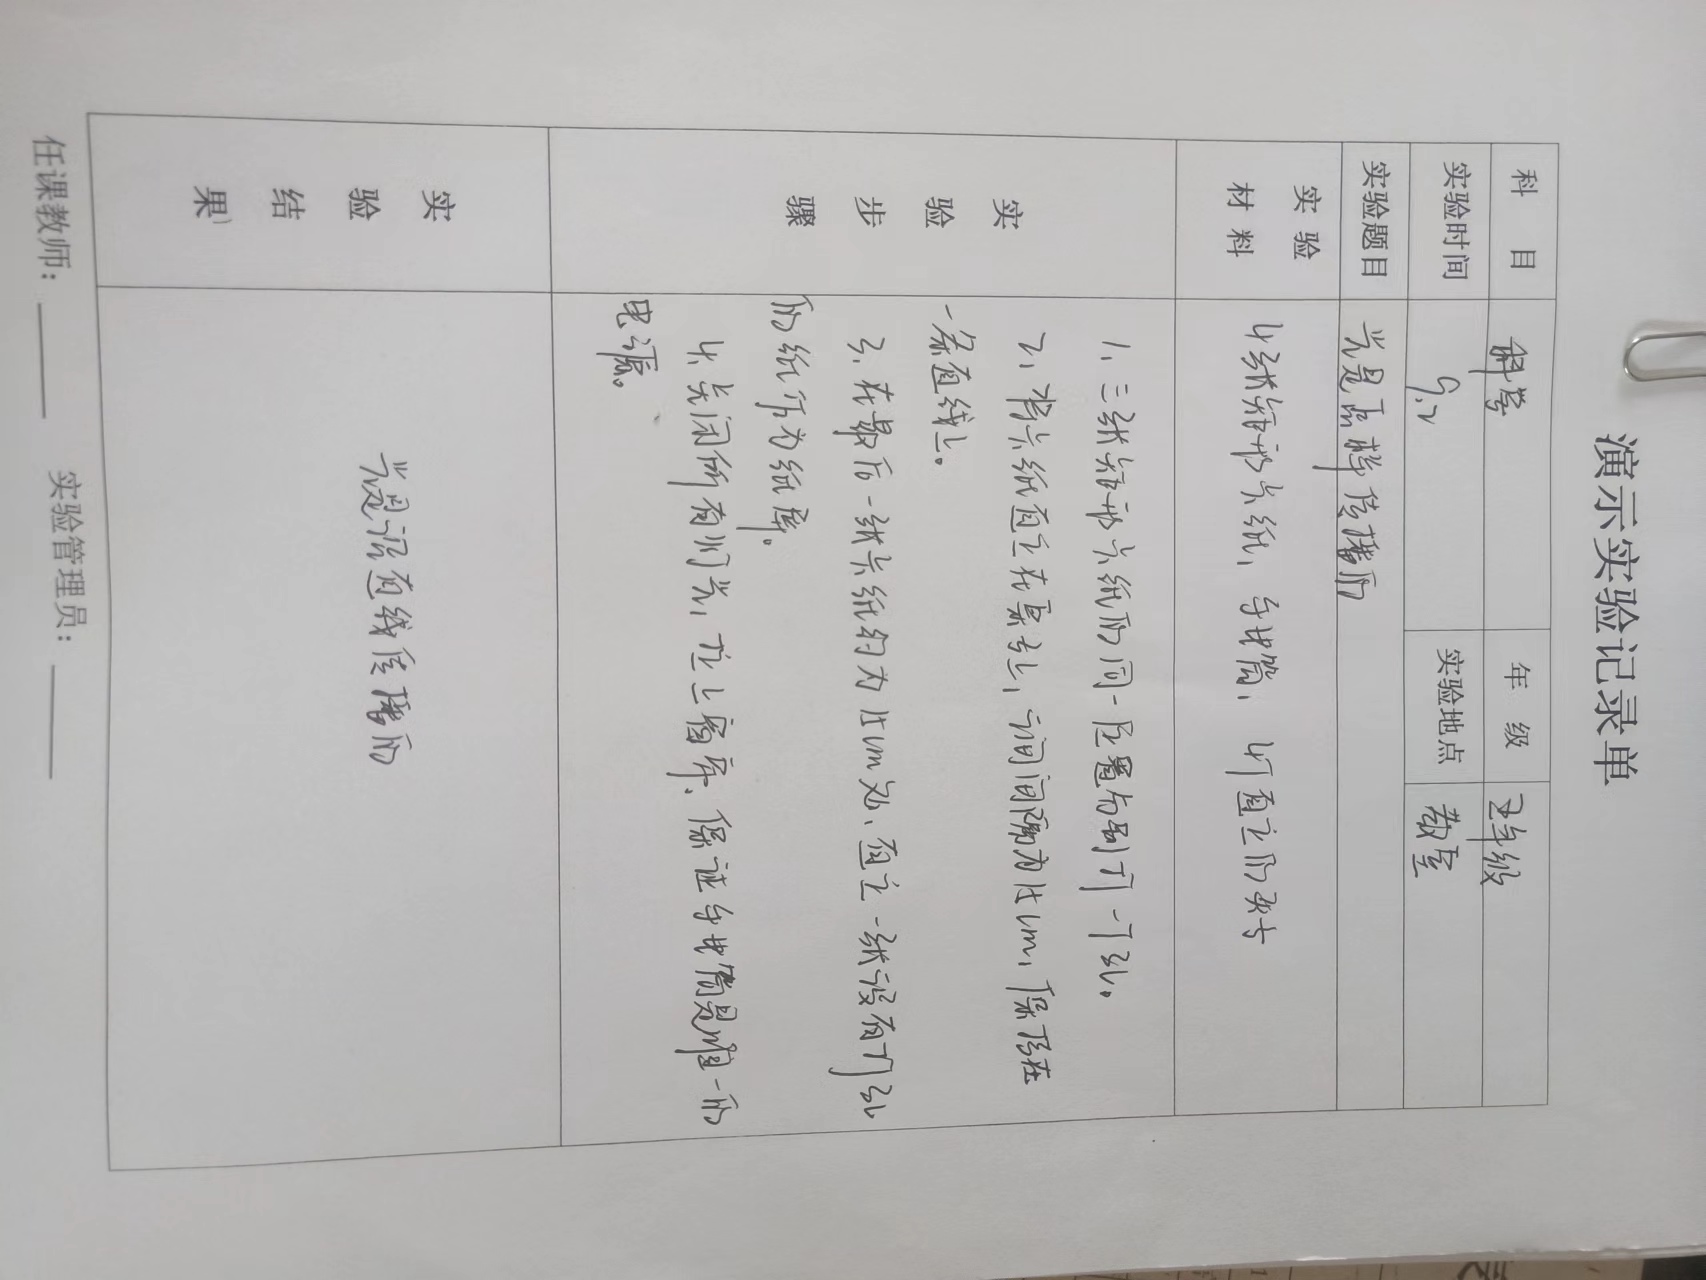 演示实验记录单
科 目 科学 年 级 五年级
实验时间 9.2 实验地点 教室
实验题目 光是怎样传播的
实验材料 4张矩形卡纸、手电筒、4个直立的夹子
实验步骤
1、三张矩形卡纸的同一位置分别打一个孔。
2、将卡纸直立在桌子上,之间间隔为15cm,保持在
一条直线上。
3、在最后一张卡纸约为15cm处,直立一张没有打孔
的纸作为纸屏。
4、关闭所有灯光,拉上窗帘,保证手电筒是唯一的
电源。
实验结果
光是沿直线传播的
任课教师: 实验管理员: